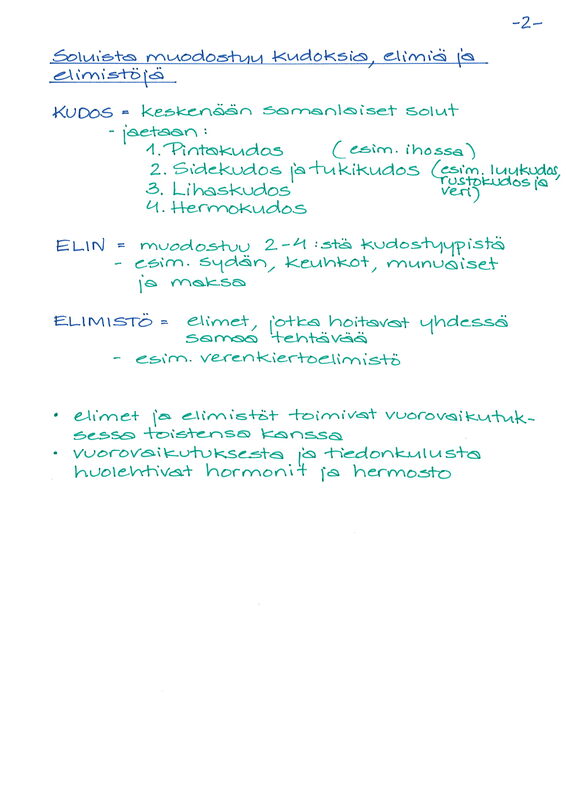 -2-
Soluista muodostuu kudoksia, elimiä ja
elimistöjä
KUDOS = keskenään samanlaiset solut
- jaetaan:
1. Pintakudos (esim. ihossa)
2. Sidekudos ja tukikudos (esim. luukudos,
rustokudos ja
veri)
3. Lihaskudos
4. Hermokudos
ELIN = muodostuu 2-4:stä kudostyypistä
- esim. sydän, keuhkot, munuaiset
ja maksa
ELIMISTÖ = elimet, jotka hoitavat yhdessä
samaa tehtävää
- esim. verenkiertoelimistö
• elimet ja elimistöt toimivat vuorovaikutuk-
sessa toistensa kanssa
• vuorovaikutuksesta ja tiedonkulusta
huolehtivat hormonit ja hermosto